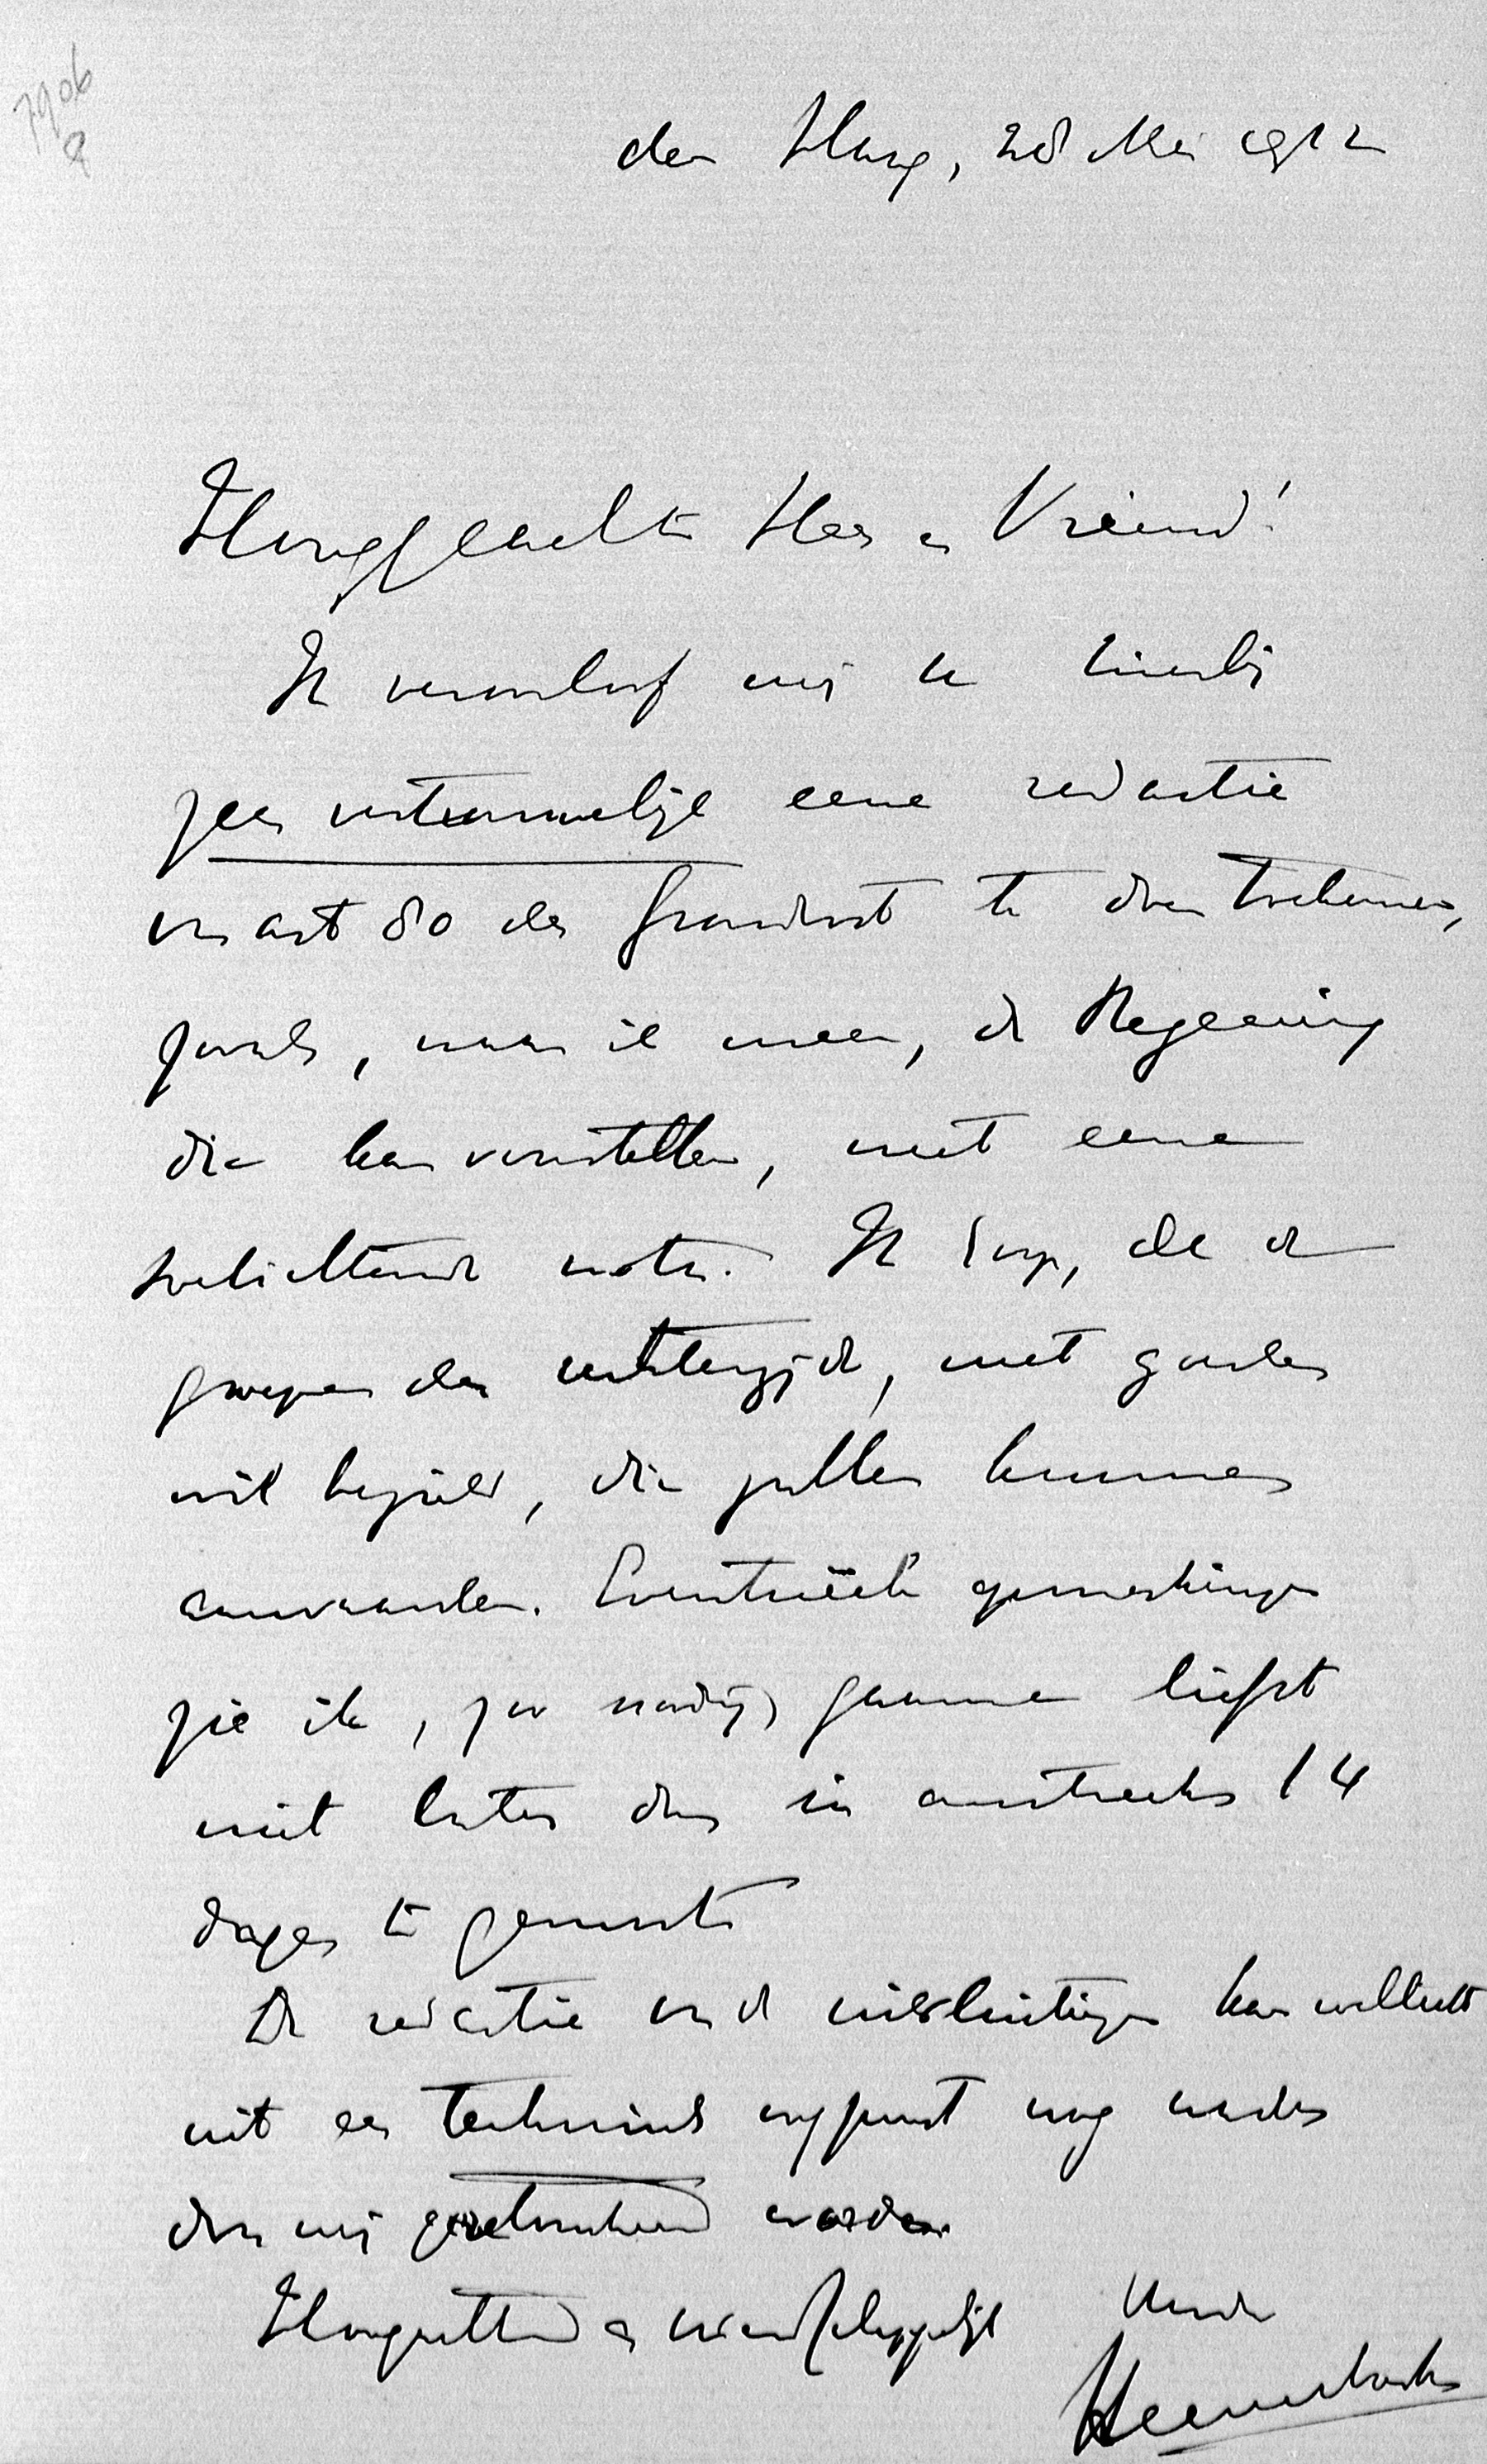 7906
den Haag, 28 Mei 1912
Hooggeachte Heer en Vriend!
Ik veroorloof mij U hierbij
zeer vertrouwelijk eene redactie
van art 80 der Grondwet te doen toekomen,
zooals, naar ik meen, de Regeering
die kan voorstellen, met eene
toelichtende nota. Ik hoop, dat de
groepen der rechterzijde, met goeden
wil bezield, die zullen kunnen
aanvaarden. Eventuëele opmerkingen
zie ik, zoo noodig, gaarne liefst
niet later dan in omstreeks 14
dagen te gemoet
De redactie van de uitsluitingen kan wellicht
uit een technisch oogpunt nog nader
door mij getoucheerd worden
Hoogachtend en vriendschappelijk Uwe
Heemskerk